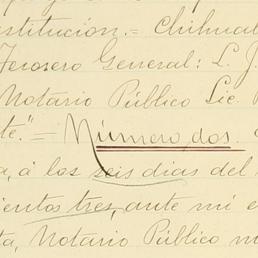 stitución.= Chihua
Tesorero General: L. J.
Notario Público Lic.
te."= Número dos.
a, á los seis dias del
ientos tres, ante mi e
ta, Notario Público